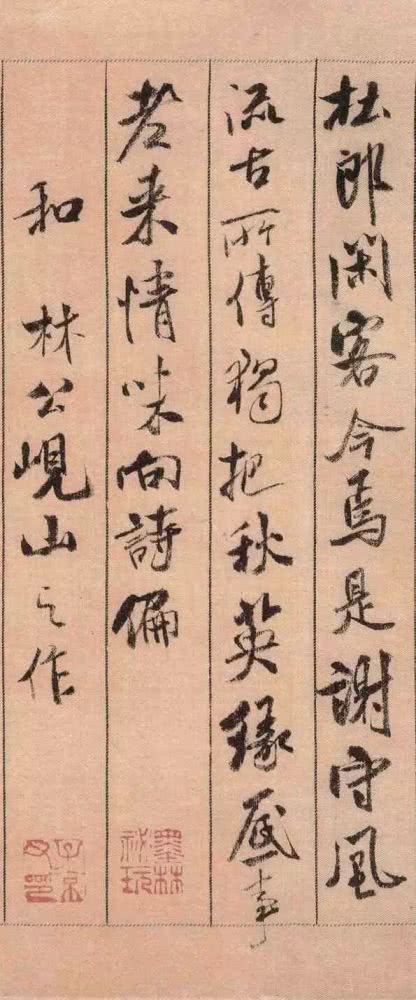 杜郎閑客今焉是謝守風
流古所傳獨把秋英緣底事
老来情味向詩偏
和 林公峴山之作
墨林祕玩
子京父印